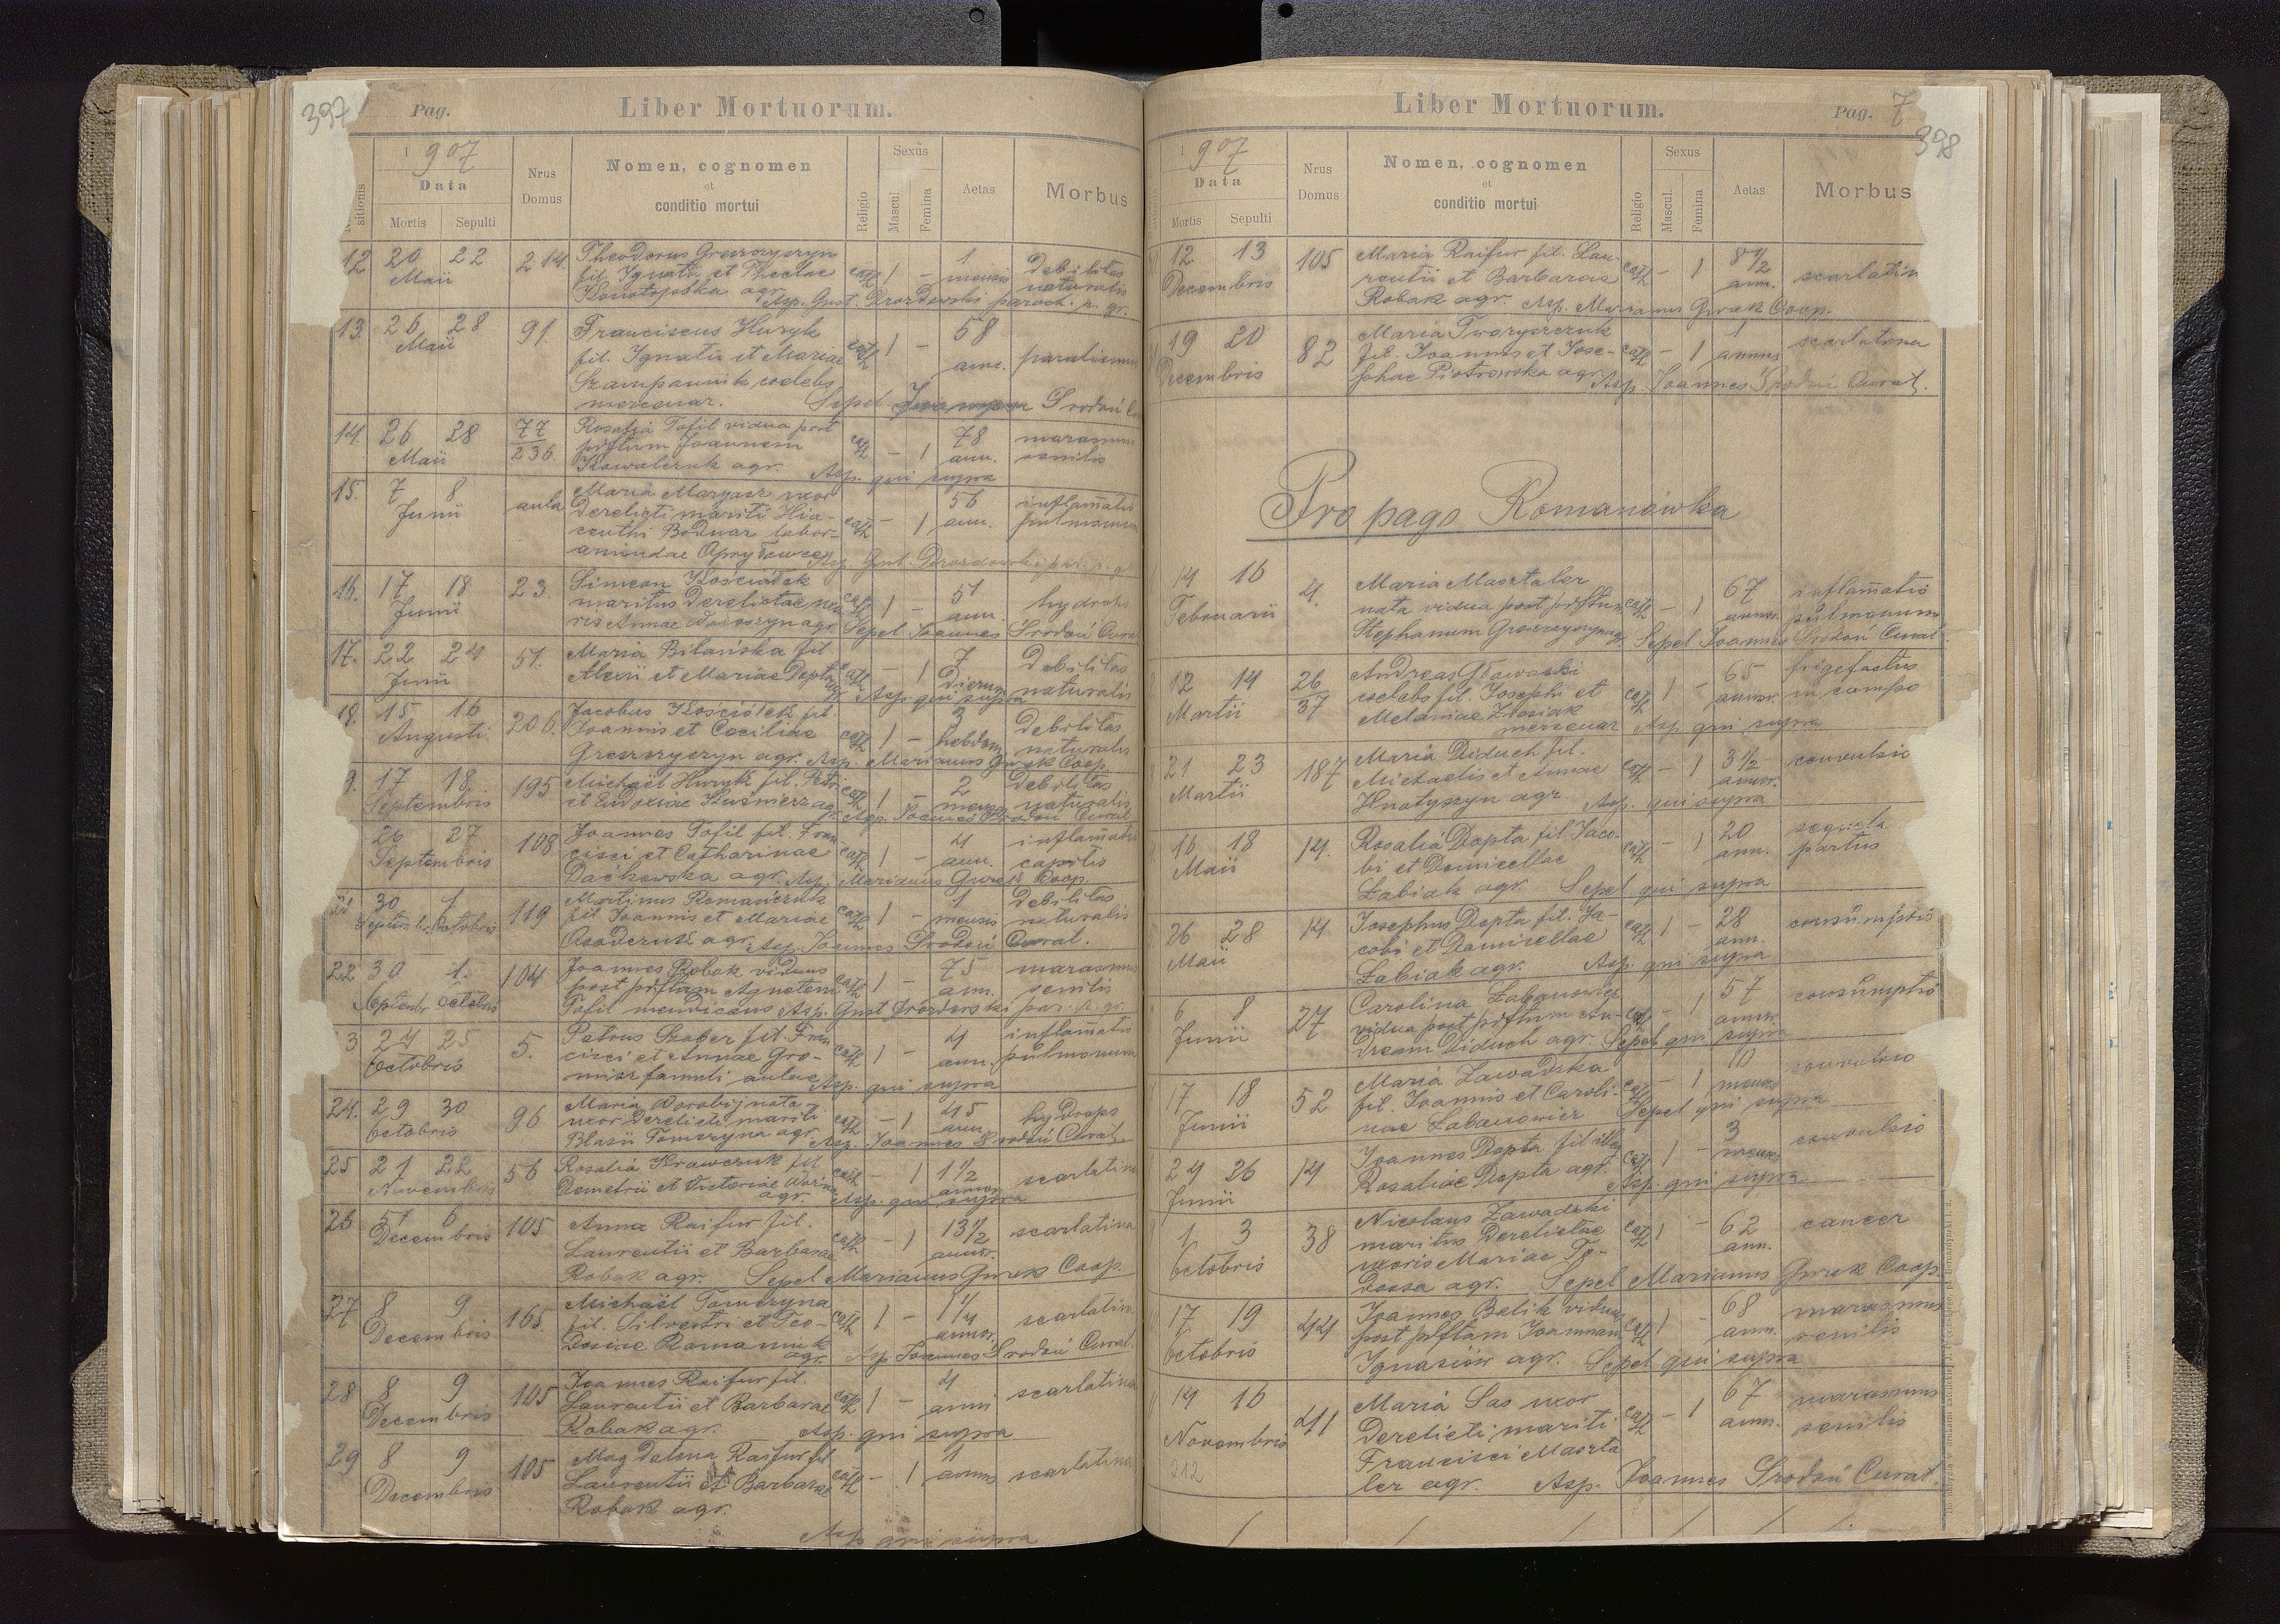 397
Pag.
Liber Mortuorum.
1907
Data
Mortis Sepulti
Nrus Domus
Nomen, cognomen
et
conditio mortui
Religio
Sexus
Mascul.
Femina
Aetas
Morbus
12 20 22 214. Theodorus Grezoryczyn 1 Debilitas
Maii fil. Ignatii et Theclae cath 1 - mensis naturalis
Konotopska agr. Asp. Gust. Drozdowski paroch. r. gr.
13. 26 28 91. Franciscus Huryk 58
Maii fil. Ignatii et Mariae cath 1 - ann. paralismus
Szampannik coelebs
mercenar. Sepel. Srodoń
14. 26 28 77 Rosalia Tofil vidua post cath - 1 78 marasmus
Maii 236. pdftum Joannem ann. senilis
Kowalczuk agr. Asp. qui supra
15. 7 8 aula Maria Margasz uxor 56 inflam̄atio
Junii derelicti mariti Hia- cath - 1 ann. pulmonum
centhi Bodnar labor-
Asp. Gust. Drozdowski par. r. g.
16. 17 18 23. Simeon Kościółek 51 hydrops
Junii maritus derelictae uxo cath 1 - ann.
ris Annae agr. Sepel. Joannes Srodoń Curat
17. 22 24 51. Maria Bilańska fil. 7 Debilitas
Junii Alexii et Mariae Depta cath - 1 dierum naturalis
agr. Asp. qui supra
18. 15 16 206. Jacobus Kościółek fil. 3 Debilitas
Augusti Joannis et Caeciliae cath 1 - hebdom. naturalis
Grezoryczyn agr. Asp. Marianus Gwrek Coop.
9. 17 18 195 Michaël Huryk fil. Petri cath 1 - 2 Debilitas
Septembris et Eudoxiae Kuśmierz agr. menses naturalis
Asp. Joannes Srodoń Curat
26 27 108 Joannes Tofil fil. Fran- 4 inflam̄atio
Septembris cisci et Catharinae cath 1 - ann. capitis
Dachowska agr. Asp. Marianus Gwrek Coop.
21 30 1 119 Martinus Romańczuk 1 Debilitas
Septembr. Octobris fil. Joannis et Mariae cath 1 - mensis naturalis
agr. Asp. Joannes Srodoń Curat.
22 30 1. 104 Joannes Robak viduus 75 marasmus
Septembr. Octobris post pdftam Agnetem cath 1 - ann. senilis
Tofil mendicans Asp. Gust Drozdowski par. r. gr.
3 24 25 5. Petrus Szaber fil. Fran 4 inflam̄atio
Octobris cisci et Annae Gro- cath 1 - ann. pulmonum
misz famuli aulae Asp. qui supra
24. 29 30 96 Maria Worobij nata 45 hydrops
Octobris uxor derelicti mariti cath - 1 ann.
Blasii Tomczyna agr. Asp. Joannes Srodoń Curat.
25 21 22 56 Rosalia Krawczuk fil. cath - 1 1½ scarlatina
Novembris Demetrii et Victoriae annor.
agr. Asp. qui supra
26 5 6 105 Anna Raifur fil. 13½ scarlatina
Decembris Laurentii et Barbarae cath - 1 annor.
Robak agr. Sepel. Marianus Gwrek Coop.
27 8 9 165. Michaël Tomczyna 1¼ scarlatina
Decembris fil. Silvestri et Teo- cath 1 - annor.
dosiae Romaniuk
agr. Asp. Joannes Srodoń Curat.
28 8 9 105 Joannes Raifur fil. 4 scarlatina
Decembris Laurentii et Barbarae cath 1 - anni
Robak agr. Asp. qui supra
29 8 9 105 Magdalena Raifur fil. 1 scarlatina
Decembris Laurentii et Barbarae cath - 1 annus
Robak agr.
Asp. qui supra
Liber Mortuorum.
Pag. 7
398
1907
Data
Mortis Sepulti
Nrus Domus
Nomen, cognomen
et
conditio mortui
Religio
Sexus
Mascul.
Femina
Aetas
Morbus
12 13 105 Maria Raifur fil. Lau- 8½
Decembris rentii et Barbarae cath - 1 ann. scarlatin
Robak agr. Asp. Marianus Gwrek Coop.
19 20 82 Maria Tworyszczuk 1 scarlatina
Decembris fil. Joannis et Jose- cath - 1 annus
phae Piotrowska agr. Asp. Joannes Srodoń Curat.
Pro pago Romanówka
14 16 4. Maria Masztaler 67 inflam̄atio
Februarii nata vidua post pdftum cath - 1 annor. pulmonum
Stephanum Grezoryczyn agr. Sepel. Joannes Srodoń Curat.
12 14 26 Andreas Gławacki 65 frigefactus
Martii 37 coelebs fil. Josephi et cath 1 - annor. in campo
Melaniae Złosiak
mercenar Asp. qui supra
21 23 187 Maria Diduch fil. 3½ convulsio
Martii Michaelis et Annae cath - 1 annor.
Hnatyszyn agr. Asp. qui supra
16 18 14. Rosalia Depta fil. Jaco- 20 sequela
Maii bi et Domicellae cath - 1 ann. partus
Łabiak agr. Sepel. qui supra
26 28 14 Josephus Depta fil. Ja- 28 consumptio
Maii cobi et Domicellae cath 1 - ann.
Łabiak agr. Asp. qui supra
6 8 27 Carolina Łabanowicz 57 consumptio
Junii vidua post pdftum An- cath - 1 annor.
dream Diduch agr. Sepel. qui supra
17 18 52 Maria Zawadzka 10 convulsio
Junii fil. Joannis et Caroli- cath - 1 mens.
nae Łabanowicz Sepel. qui supra
24 26 14 Joannes Depta fil. illeg. 3 convulsio
Junii Rosaliae Depta agr. cath 1 - mens.
Asp. qui supra
1 3 38 Nicolaus Zawadzki 62 cancer
Octobris maritus derelictae cath 1 - ann.
uxoris Mariae To-
dosa agr. Sepel. Marianus Gwrek Coop.
17 19 44 Joannes Belik viduus 68 marasmus
Octobris post pdftam Joannam cath 1 - ann. senilis
Ignasiów agr. Sepel. qui supra
14 16 411 Maria Sas uxor 67 marasmus
Novembris derelicti mariti cath - 1 ann. senilis
212 Francisci Maszta
ler agr. Asp. Joannes Srodoń Curat.